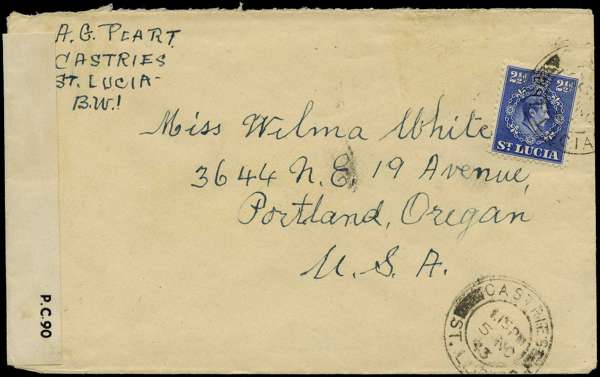 A. G. PEART
CASTRIES
ST. LUCIA-
B.W!
Miss Wilma White
3644 N.E. 19 Avenue,
Portland, Oregan
U. S. A.
2½d 2½d
ST LUCIA
P.C.90
CASTRIES
5 NO
43
ST. LUCIA